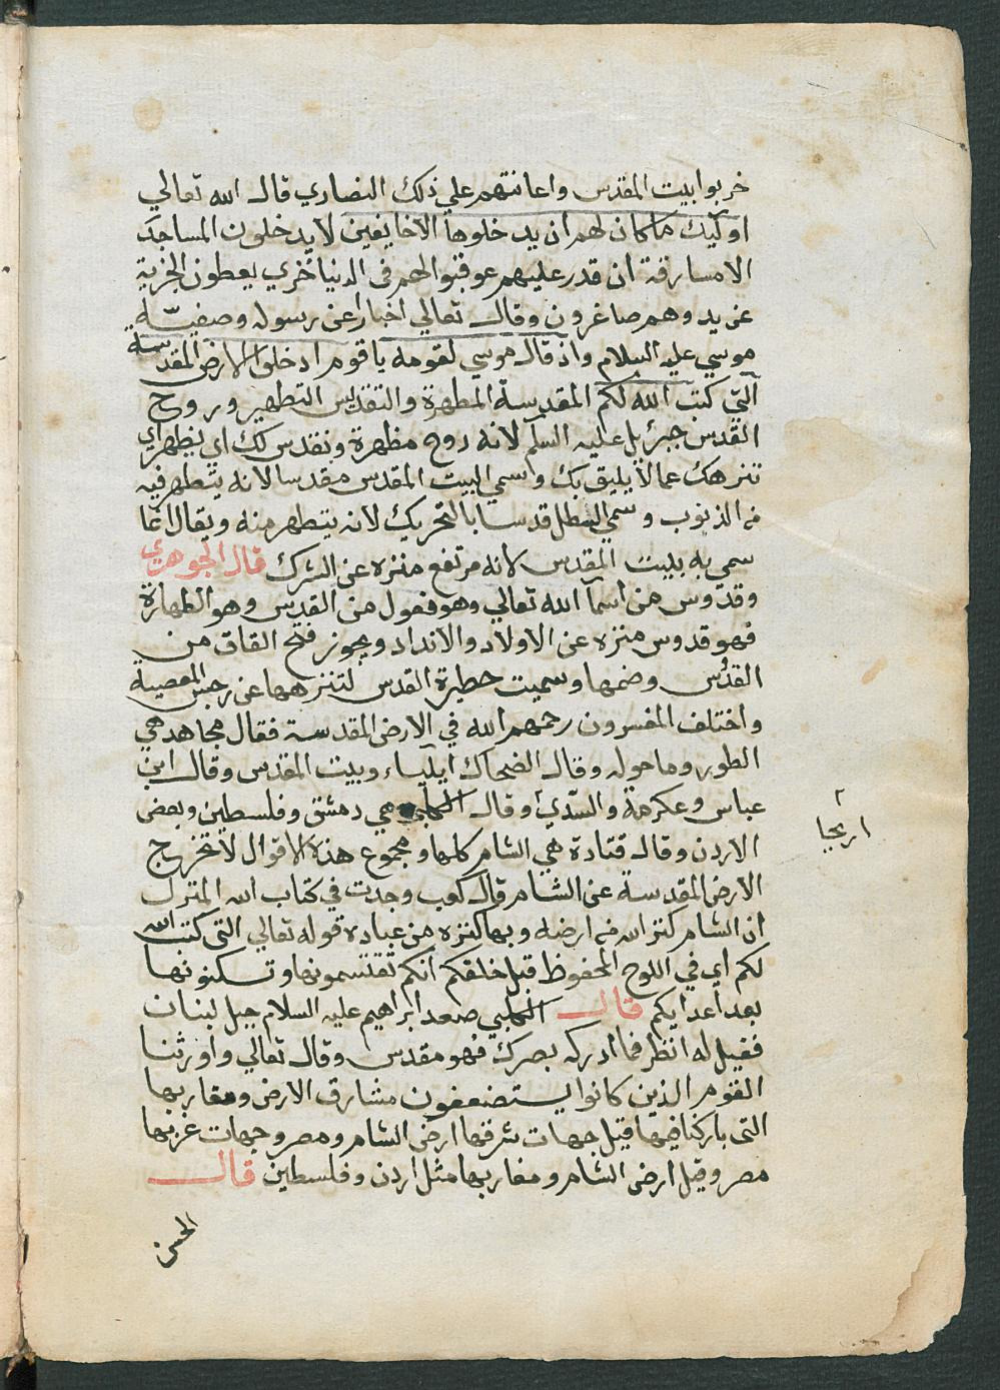 خربوا بيت المقدس واعانتهم علي ذلك النصاري قال الله تعالي
اوليك ماكان لهم ان يدخلوها الاخايفين لا يدخلون المساجد
الامسارقة ان قدر عليهم عوقبوا لهم في الدنيا خزي يعطون الجزية
عن يد وهم صاغرون وقال تعالي اخبارا عن رسوله وصفيه
موسي عليه السلام واذ قال موسي لقومه ياقوم ادخلوا الارض المقدسة
التي كتب الله لكم المقدسة المطهرة والتقديس التطهير وروح
القدس جبرئيل عليه السلم لانه روح مطهرة ونقدس لك اي نطهراي
ننزهك عما لا يليق بك واسمي البيت المقدس مقدسا لانه يتطهر فيه
من الذنوب وسمي السطل قدسا بالتحريك لانه يتطهر منه ويقال انما
سمي به بيت المقدس لانه مرتفع منزه عن الشرك قال الجوهري
وقدوس من اسمآ الله تعالي وهو فعول من القدس وهو الطهارة
فهو قدوس منزه عن الاولاد والانداد ويجوز فتح القاف من
القدس وضمها وسميت حطيرة القدس لتنزهها عن رجس المعصية
واختلف المفسرون رحمهم الله في الارض المقدسة فقال مجاهد هي
الطور وماحوله وقال الضحاك ايلياء وبيت المقدس وقال ابن
عباس وعكرمة والسدي وقال الكلبي هي دمشق وفلسطين وبعض
اريحا
الاردن وقال قتادة هي الشام كلها ومجموع هذه الاقوال لا تخرج
الارض المقدسة عن الشام قال كعب وجدت في كتاب الله المنزل
ان الشام كنز الله في ارضه وبها كنزه من عباده قوله تعالي التي كتب الله
لكم اي في اللوح المحفوظ قبل خلقكم انكم تقتسمونها وتسكنونها
بعد اعدايكم قال الكلبي صعد ابراهيم عليه السلام جبل لبنان
فقيل له انظر فما ادركه بصرك فهو مقدس وقال تعالي واورثنا
القوم الذين كانوا يستضعفون مشارق الارض ومغاربها
التي باركنا فيها قيل جهات شرقها ارض الشام ومصر وجهات غربها
مصر وقيل ارض الشام ومغاربها مثل اردن وفلسطين قال
الحسن